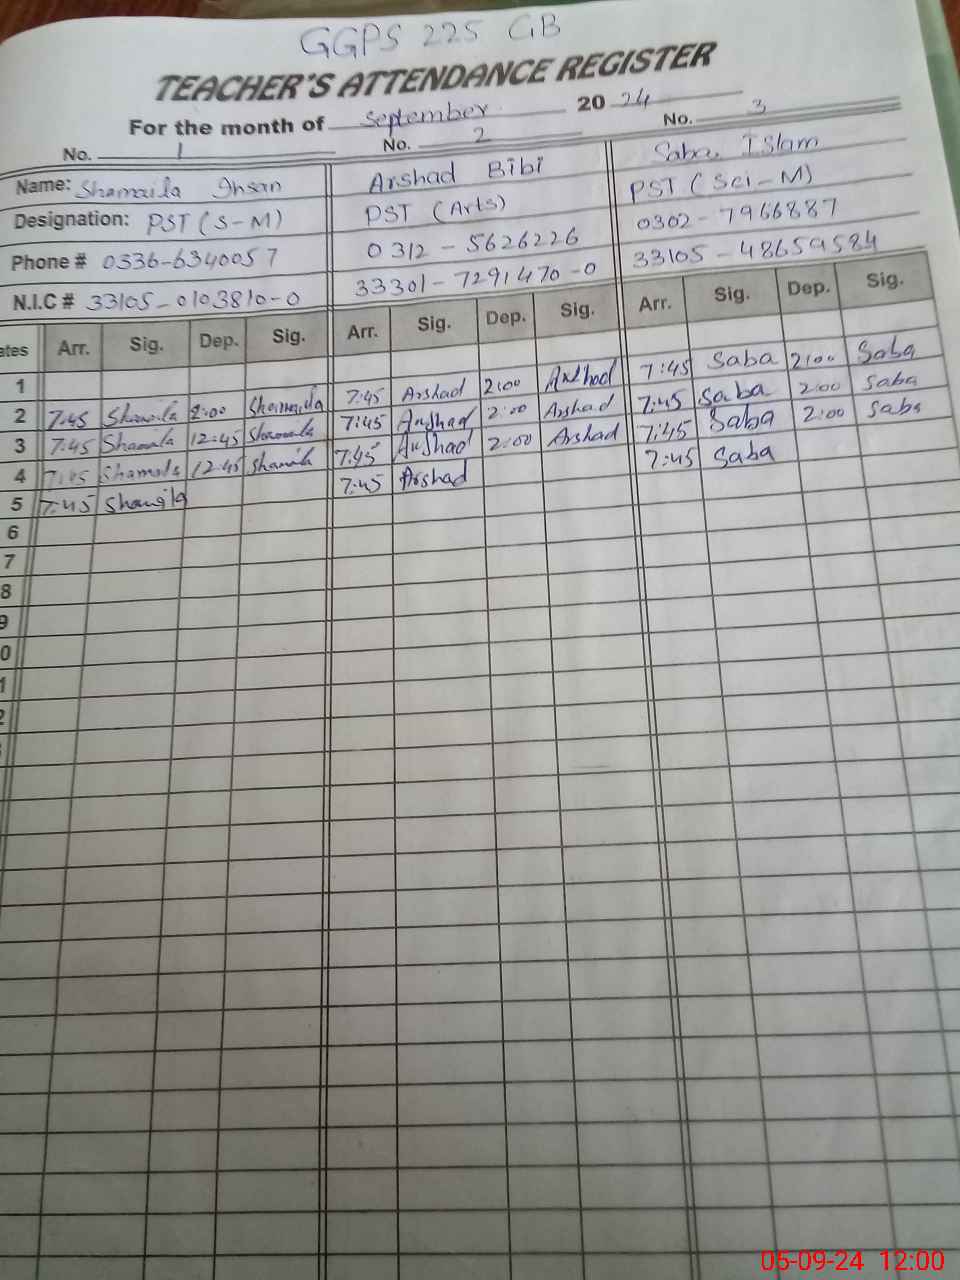 GGPS 225 GB
TEACHER'S ATTENDANCE REGISTER
For the month of September 20 24
No. 1 No. 2 No. 3
Name: Shamaila Ihsan Arshad Bibi Saba Islam
Designation: PST (S-M) PST (Arts) PST (Sci-M)
Phone # 0336-6340057 0312-5626226 0302-7966887
N.I.C # 33105-0103810-0 33301-7291470-0 33105-48659584
ates Arr. Sig. Dep. Sig. Arr. Sig. Dep. Sig. Arr. Sig. Dep. Sig.
1
2 7:45 Shamaila 2:00 Shamaila 7:45 Arshad 2:00 Arshad 7:45 Saba 2:00 Saba
3 7:45 Shamaila 12:45 Shamaila 7:45 Arshad 2:00 Arshad 7:45 Saba 2:00 Saba
4 7:45 Shamaila 12:45 Shamaila 7:45 Arshad 2:00 Arshad 7:45 Saba 2:00 Saba
5 7:45 Shamaila 7:45 Arshad 7:45 Saba
6
7
8
9
0
1
2
05-09-24 12:00